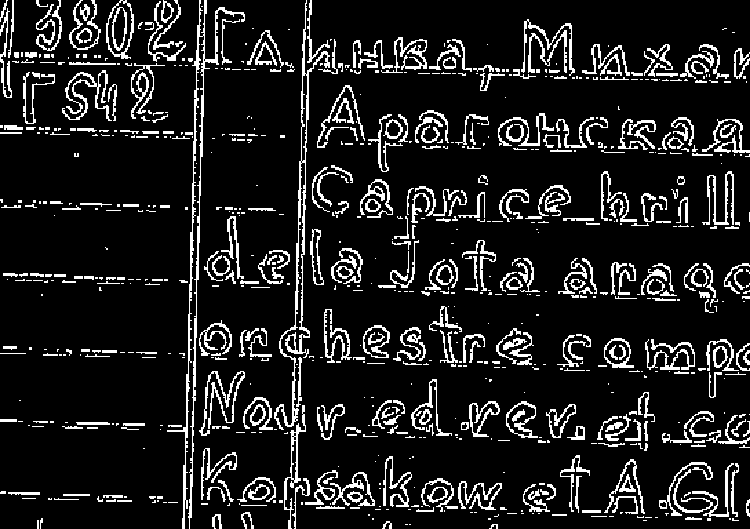 1380-2 Глинка, Михаи
Г542 Арагонская
Caprice brill
de la Jota arago
orchestre compo
Nouv. ed. rev. et. co
Korsakow et A. Gl